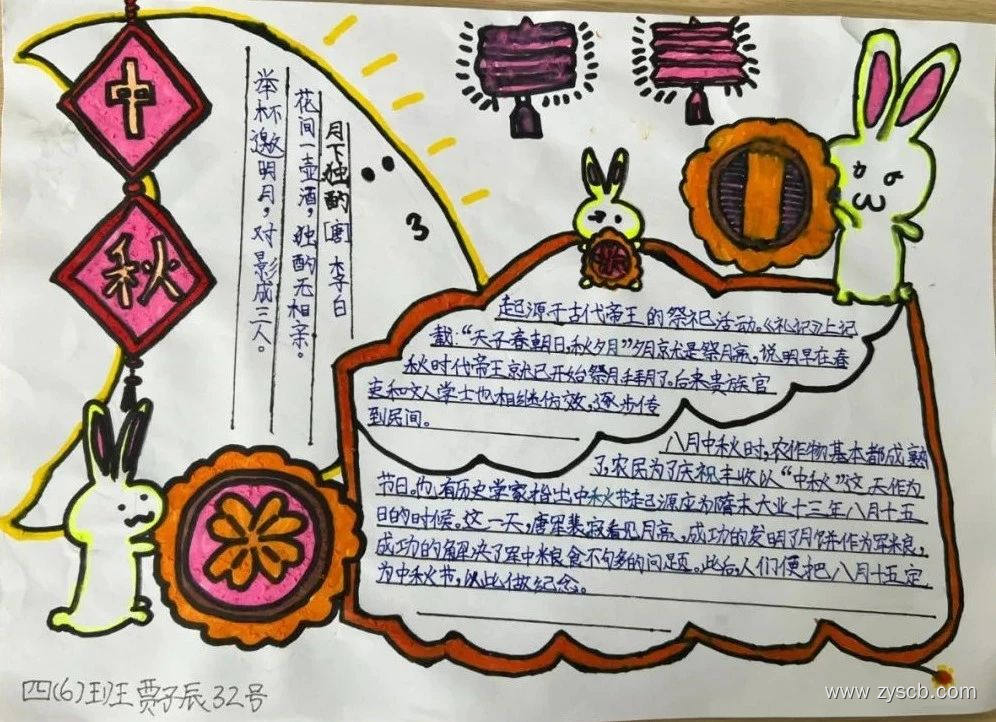 中
秋
月下独酌[唐]李白
花间一壶酒，独酌无相亲。
举杯邀明月，对影成三人。
起源于古代帝王的祭祀活动。《礼记》上记
载：“天子春朝日，秋夕月”夕月就是祭月亮，说明早在春
秋时代帝王就已开始祭月拜月了。后来贵族官
吏和文人学士也相继仿效，逐步传
到民间。
八月中秋时，农作物基本都成熟
了，农民为了庆祝丰收以“中秋”这天作为
节日。也有历史学家指出中秋节起源应为隋末大业十三年八月十五
日的时候。这一天，唐军裴寂看见月亮，成功的发明了月饼作为军粮，
成功的解决了军中粮食不够多的问题。此后，人们便把八月十五定
为中秋节，以此做纪念。
四(6)班 贾子辰 32号
www.zyscb.com